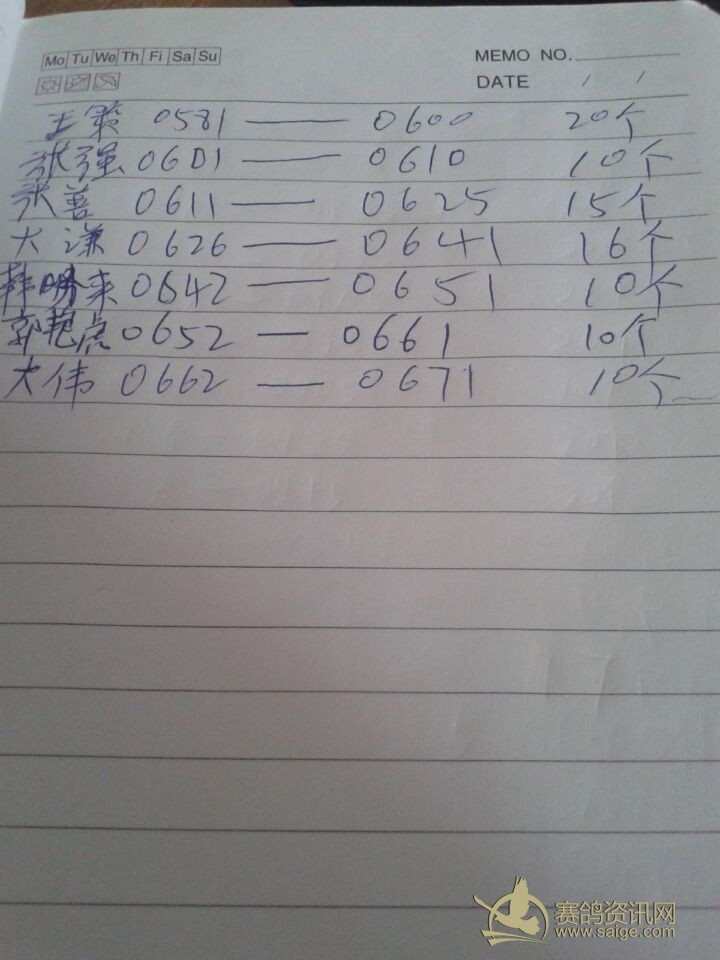 Mo Tu We Th Fi Sa Su
MEMO NO.
DATE / /
王 0581 — 0600 20个
张强 0601 — 0610 10个
张善 0611 — 0625 15个
大谦 0626 — 0641 16个
韩明来 0642 — 0651 10个
郭艳虎 0652 — 0661 10个
大伟 0662 — 0671 10个
赛鸽资讯网
www.saige.com